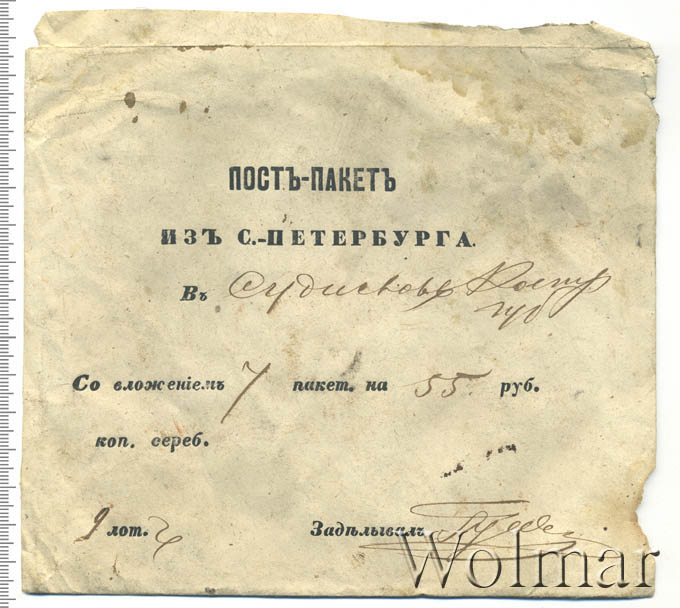 ПОСТЪ-ПАКЕТЪ
ИЗЪ С.-ПЕТЕРБУРГА.
Въ Судиславль Костр
губ
Со вложеніемъ 7 пакет. на 55 руб.
коп. сереб.
9 лот.
Задѣлывалъ
Wolmar